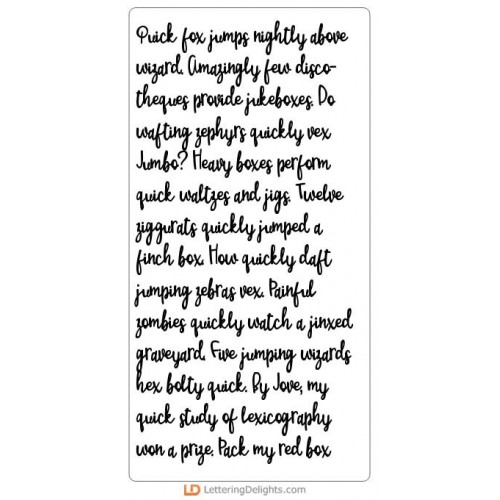 Quick fox jumps nightly above
wizard. Amazingly few disco-
theques provide jukeboxes. Do
wafting zephyrs quickly vex
Jumbo? Heavy boxes perform
quick waltzes and jigs. Twelve
ziggurats quickly jumped a
finch box. How quickly daft
jumping zebras vex. Painful
zombies quickly watch a jinxed
graveyard. Five jumping wizards
hex bolty quick. By Jove, my
quick study of lexicography
won a prize. Pack my red box
LD LetteringDelights.com